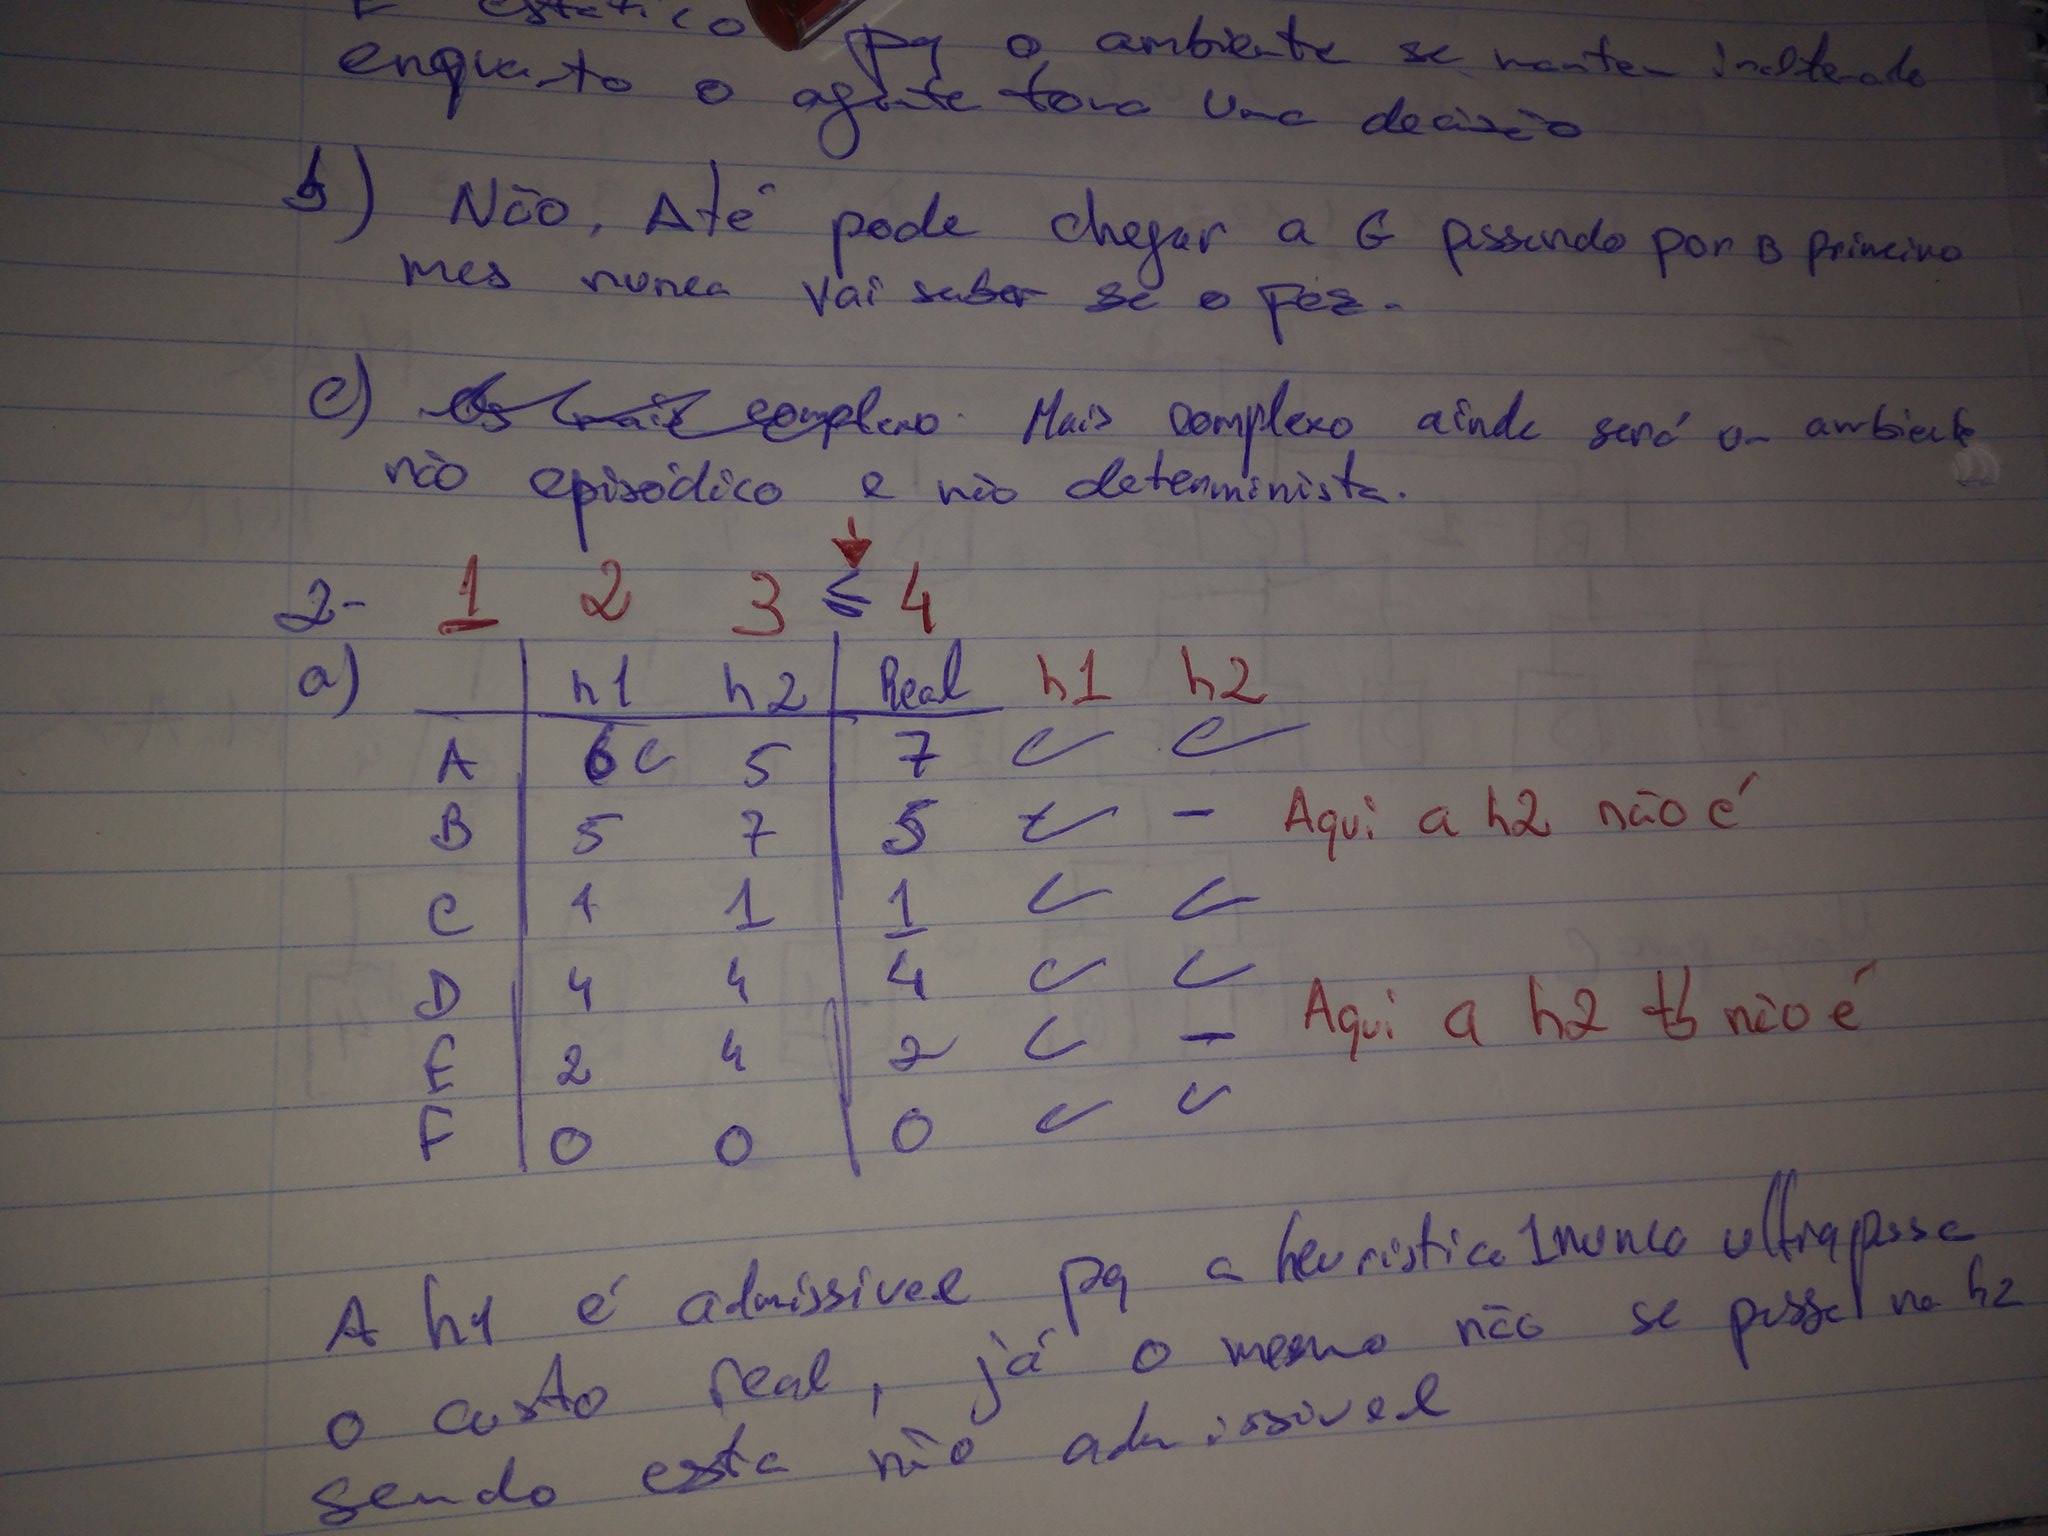 É estático pq o ambiente se mantem inalterado
enquanto o agente toma uma decisão
b) Não, Até pode chegar a G passando por B primeiro
mas nunca vai saber se o fez.
c) mais complexo. Mais complexo ainda será um ambiente
não episódico e não determinista.
2- 1 2 3 ≤ 4
a) h1 h2 Real h1 h2
A 6 5 7 ✓ ✓
B 5 7 5 ✓ - Aqui a h2 não é
C 1 1 1 ✓ ✓
D 4 4 4 ✓ ✓
E 2 4 2 ✓ - Aqui a h2 tb não é
F 0 0 0 ✓ ✓
A h1 é admissivel pq a heuristica 1 nunca ultrapassa
o custo real, já o mesmo não se passa na h2
sendo esta não admissivel